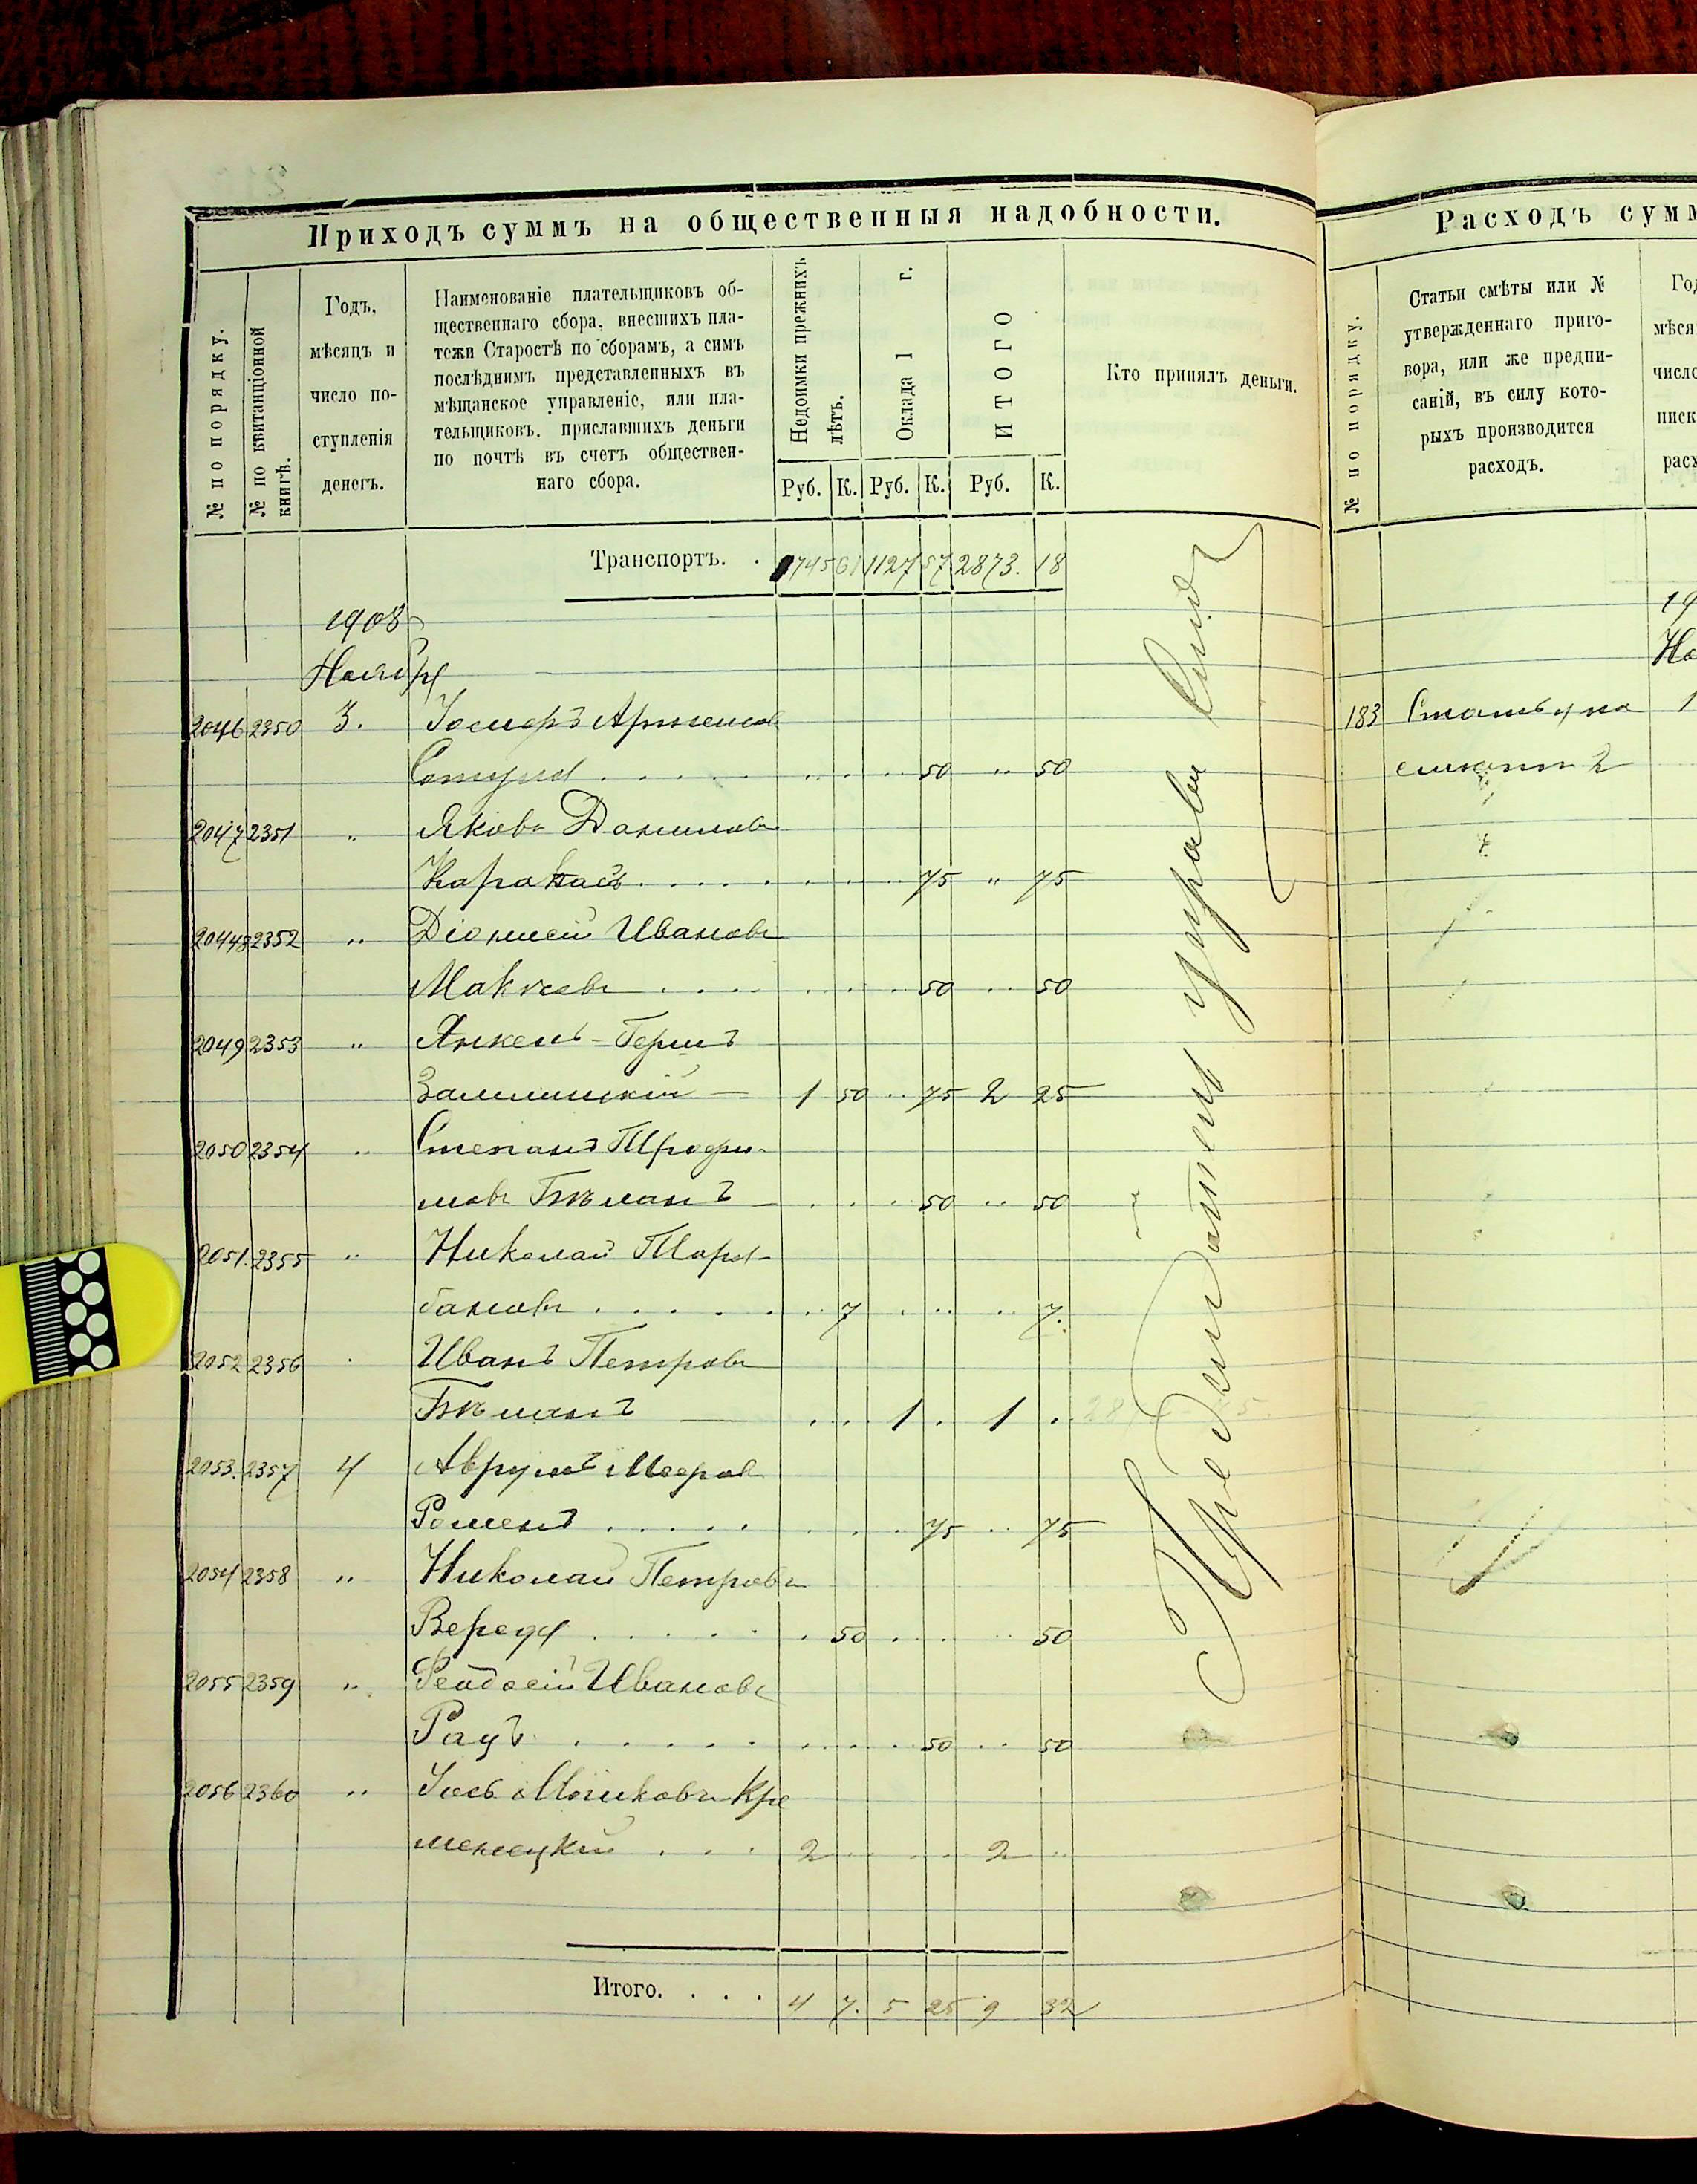 Приходъ суммъ на общественныя надобности.
№ по порядку.
№ по квитанціонной книгѣ.
Годъ,
мѣсяцъ и
число по-
ступленія
денегъ.
Наименованіе плательщиковъ об-
щественнаго сбора, внесшихъ пла-
тежи Старостѣ по сборамъ, а симъ
послѣднимъ представленныхъ въ
мѣщанское управленіе, или пла-
тельщиковъ, приславшихъ деньги
по почтѣ въ счетъ обществен-
наго сбора.
Недоимки прежнихъ лѣтъ.
Оклада 1 г.
ИТОГО
Кто принялъ деньги.
Руб. К. Руб. К. Руб. К.
Транспортъ. . 1745 61 1127 57 2873. 18
1908
Ноября
2046 2350 3. Іосифъ
50 .. 50
2047 2351 .. Яковъ Даниловъ
Каракасъ 75 " 75
2048 2352 .. Діонисій Ивановъ
Макеевъ 50 .. 50
2049 2353 .. Янкель-Гершъ
1 50 .. 75 2 25
2050 2354 .. Степанъ Трофи-
мовъ Бѣманъ 50 .. 50
2051. 2355 .. Николай
7 7.
2052 2356 Иванъ Петровъ
Бѣманъ 1 . 1 .
2053. 2357 4 Аврумъ Мееровъ
75 .. 75
2054 2358 .. Николай Петровъ
50 50
2055 2359 .. Феодосій Ивановъ
Рацъ 50 .. 50
2056 2360 .. Іось Мошковъ Кре
менецкій 2 2 ..
Итого. . . . 4 7. 5 25 9 32
Предсѣдатель управы
Расходъ сумм
№ по порядку.
Статьи смѣты или №
утвержденнаго приго-
вора, или же предпи-
саній, въ силу кото-
рыхъ производится
расходъ.
Год
мѣся
число
писк
расх
19
Но
183 1
2